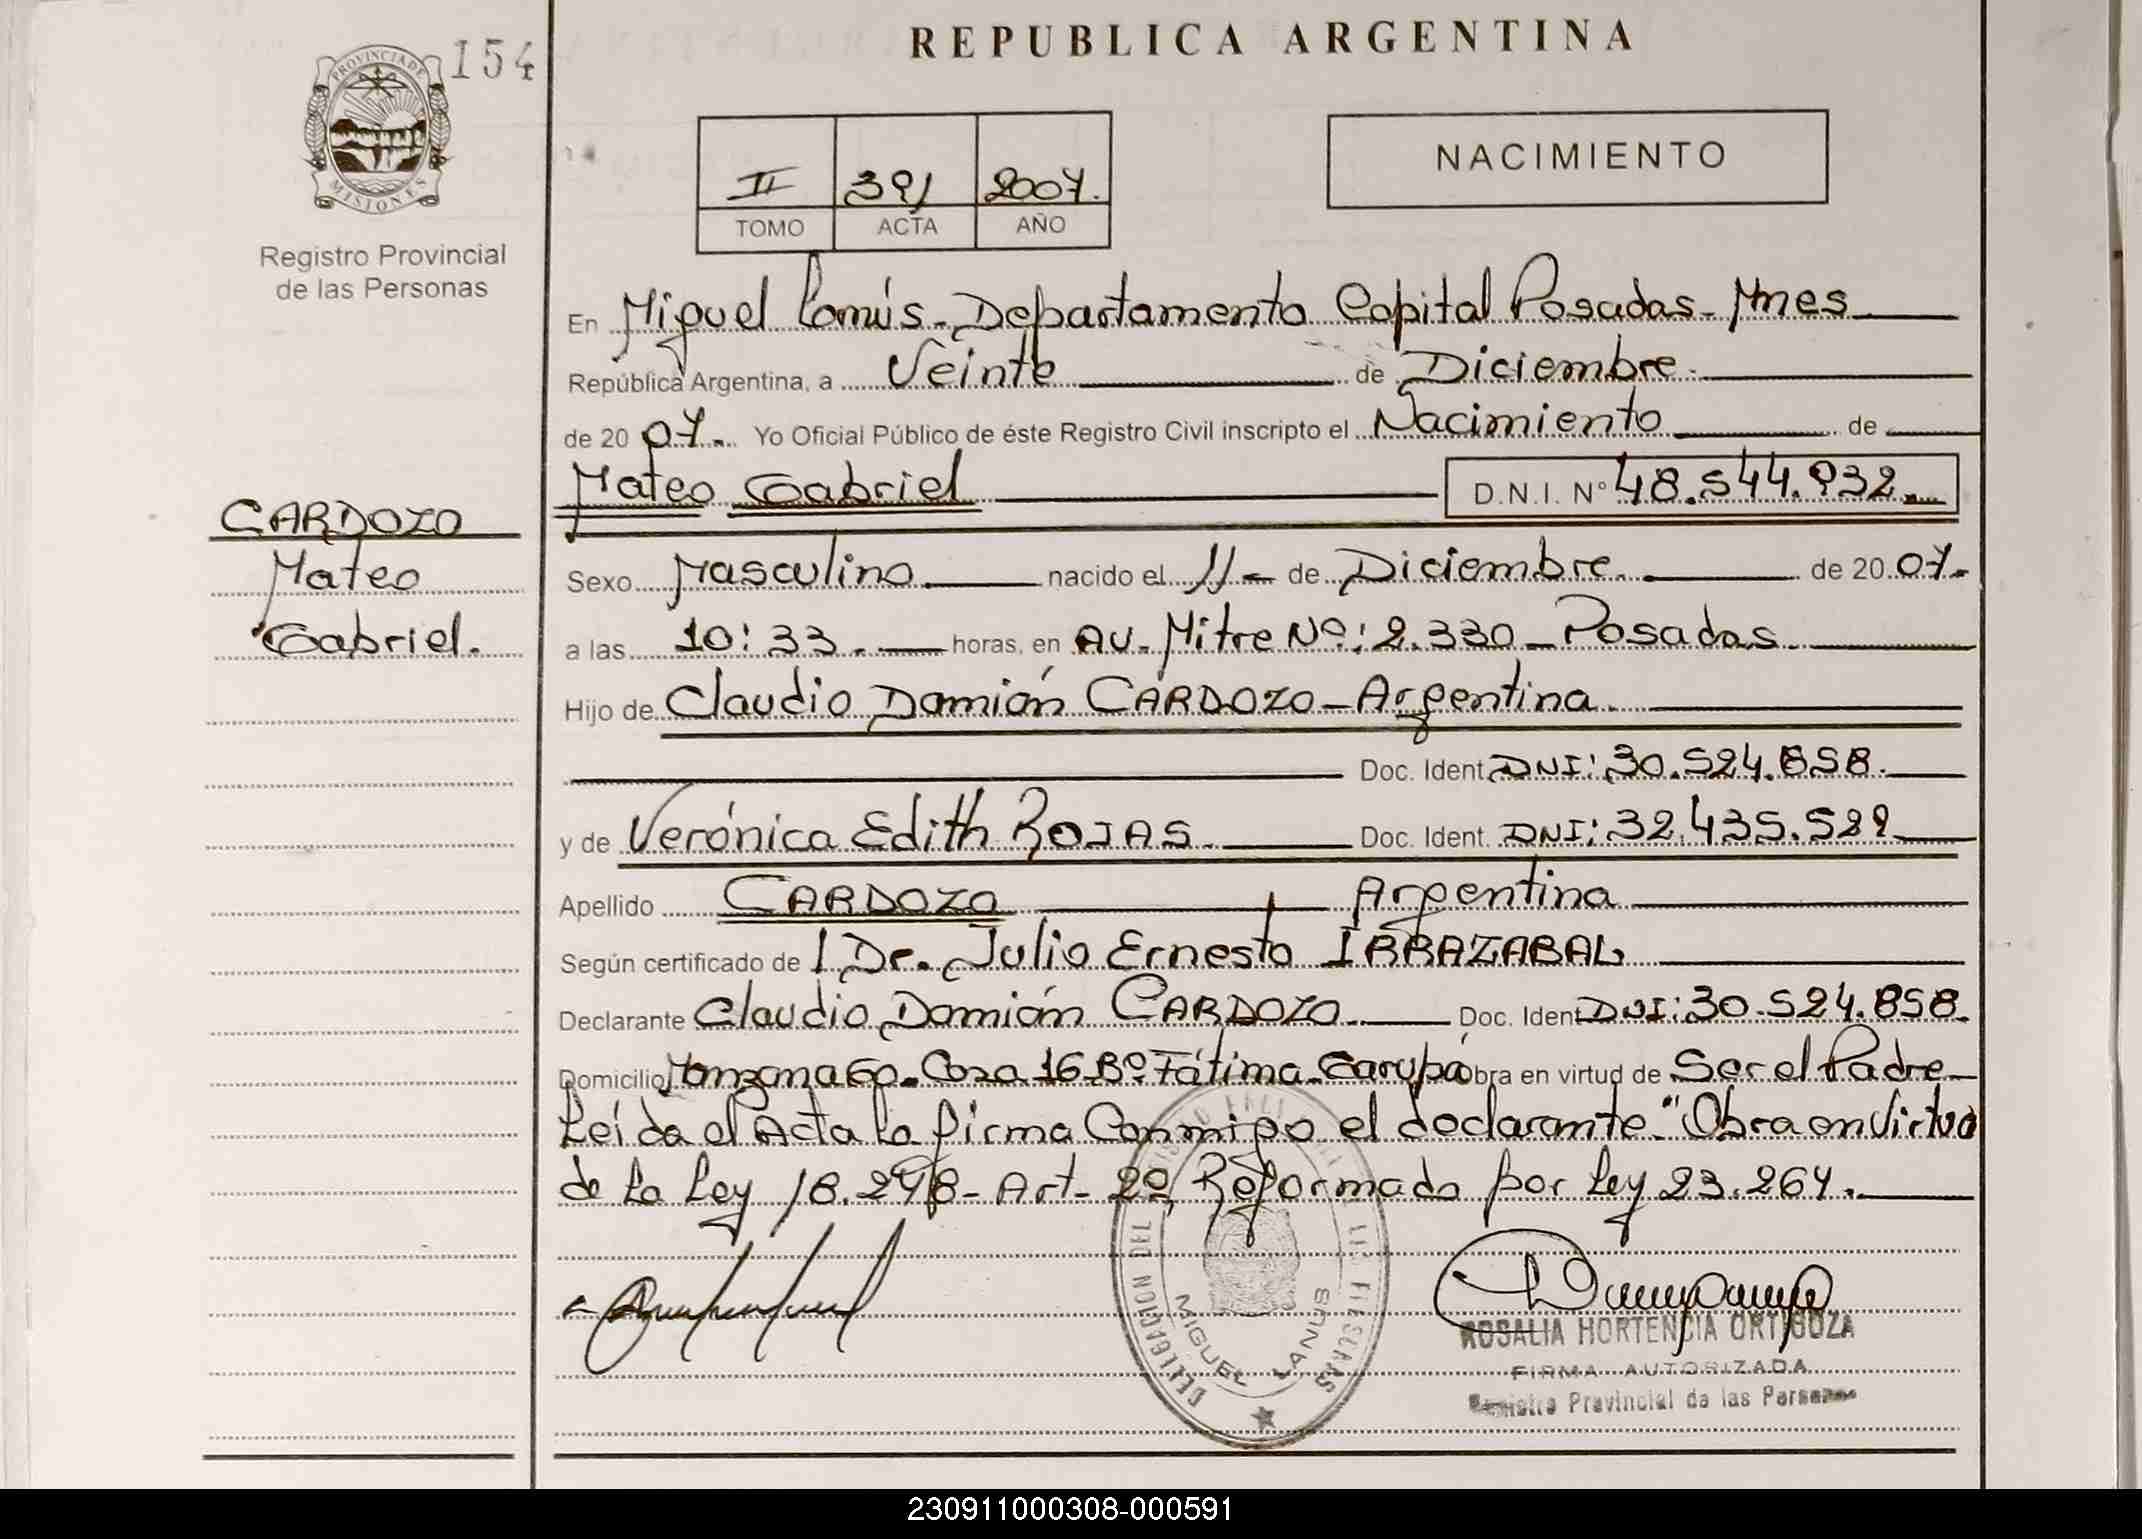 REPUBLICA ARGENTINA
154
PROVINCIA DE
MISIONES
Registro Provincial
de las Personas
II 391 2007.
TOMO ACTA AÑO
NACIMIENTO
En Miguel Lanús - Departamento Capital Posadas - Mnes
República Argentina, a Veinte de Diciembre.
de 20 07. Yo Oficial Público de éste Registro Civil inscripto el Nacimiento de
Mateo Gabriel D.N.I. Nº 48.544.932.
CARDOZO
Mateo
Gabriel.
Sexo Masculino nacido el 11- de Diciembre. de 20 07.
a las 10:33. horas, en AV. Mitre Nº: 2.330 - Posadas.
Hijo de Claudio Damián CARDOZO - Argentina.
Doc. Ident. DNI: 30.524.858.
y de Verónica Edith ROJAS. Doc. Ident. DNI: 32.435.522
Apellido CARDOZO Argentina
Según certificado de l Dr. Julio Ernesto IRRAZABAL
Declarante Claudio Damián CARDOZO. Doc. Ident DNI: 30.524.858.
Domicilio Manzana 60. Casa 16 Bº Fátima - Garupá Obra en virtud de Ser el Padre
Leída el Acta la firma Conmigo el declarante. "Obra en Virtud
de la Ley 18.248 - Art - 2º Reformado por Ley 23.264.
DELEGACION DEL REGISTRO PROVINCIAL DE LAS PERSONAS
MIGUEL LANUS
ROSALIA HORTENCIA ORTIGOZA
FIRMA AUTORIZADA
Registro Provincial de las Personas
230911000308-000591